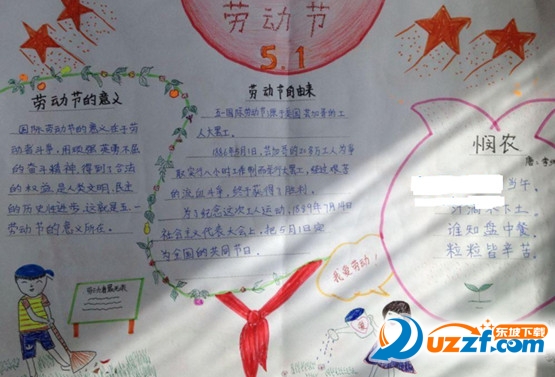 劳动节
5.1
劳动节的意义
国际劳动节的意义在于劳
动者斗争,用顽强英勇不屈
的奋斗精神,得到了合法
的权益,是人类文明,民主
的历史性进步,这就是五一
劳动节的意义所在。
劳动节的由来
五一国际劳动节源于美国芝加哥的工
人大罢工。
1886年5月1日,芝加哥的21.6万工人为争
取实行八小时工作制而举行大罢工,经过艰苦
的流血斗争,终于获得了胜利。
为了纪念这次工人运动,1889年7月14日
社会主义代表大会上,把5月1日定
为全国的共同节日。
悯农
唐:
当午,
下土。
谁知盘中餐
粒粒皆辛苦。
我爱劳动!
东坡下载
uzzf.com